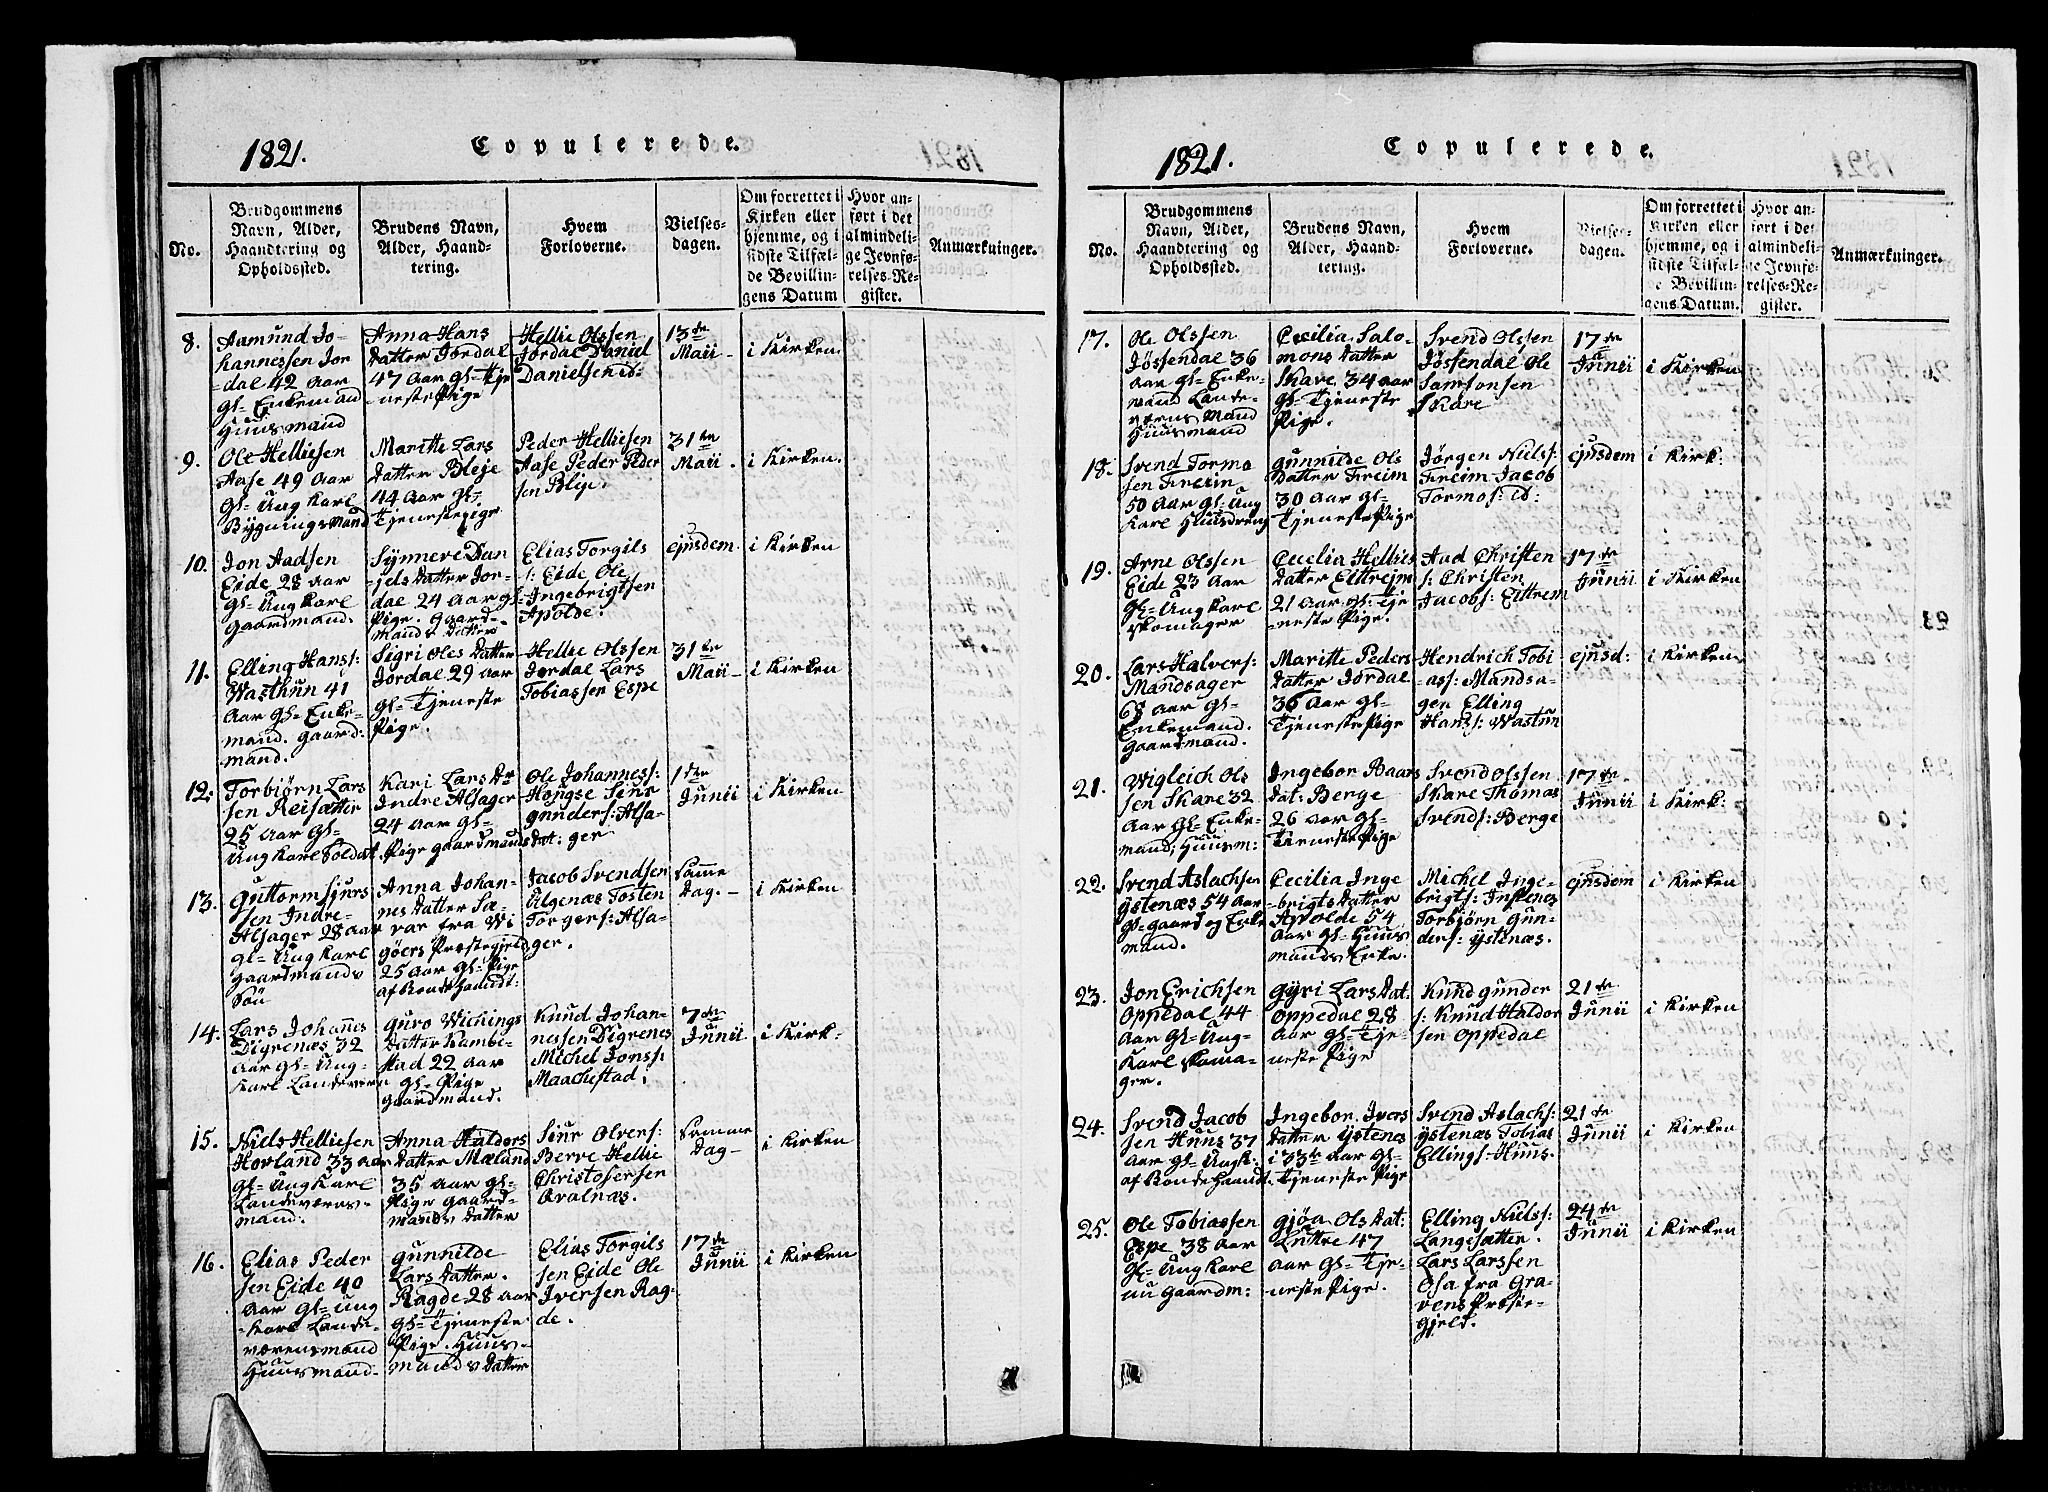 1821.
Copulerede.
No.
Brudgommens
Navn, Alder,
Haandtering og
Opholdssted.
Brudens Navn,
Alder, Haand-
tering.
Hvem
Forloverne.
Vielses-
dagen.
Om forrettet i
Kirken eller
hjemme, og i
sidste Tilfæl-
de Bevillin-
gens Datum
Hvor an-
ført i det
almindeli-
ge Jevnfø-
relses-Re-
gister.
Anmærkninger.
8.
Aamund Jo-
hannessen Jor
-dal 42 Aar
gl= Enkemand
Huusmand
Anna Hans
Datter Jordal
47 Aar gl=Tje
-neste Pige
Hellie Olssen
Jordal Daniel
Danielsen ib:
13de
Maii -
i Kirken.
9.
Ole Helliesen
Aase 49 Aar
gl= Ung Karl
Bygningsmand
Maritte Lars
Datter Bleje
44 Aar gl=
Tjenestepige
Peder Helliesen
Aase Peder Peder
sen Blije.
31te
Maii.
i Kirken.
10.
Jon Aadsen
Eide 28 Aar
gl= Ung Karl
Gaardmand.
Synneve Dan
-jels Datter Jor-
dal 24 Aar gl=
Pige. Gaard-
mands Datter
Elias Torgils
s: Eide Ole
Ingebrigtsen
Apolde.
ejusdem.
i Kirken
11.
Elling Hanss:
Wasthun 41
Aar gl= Enke-
mand. gaard:
mand.
Sigri Oles Datter
Jordal 29 Aar
gl= Tjeneste
Pige.
Hellie Olssen
Jordal Lars
Tobiassen Espe
31te
Maii -
i Kirken
12.
Torbiørn Lars
sen Reisætter
25 Aar gl=
Ung Karl Soldat.
Kari Lars Dr
Indre Alsager
24 Aar gl=
Pige gaardmands dat:
Ole Johanness:
Hougse Siur
gunders: Alsa-
ger
1ste
Junii
i Kirken
13.
Guttorm Sjurs
sen Indre-
Alsager 28 aar
gl= Ung Karl
Gaardmands
Søn
Anna Johan-
nes Datter Sæ-
var fra Wi
gøers Præstegjeld
25 Aar gl= Pige
af Bondestandt:
Jacob Svendsen
Algenæs Tosten
Torgers: Alsa-
ger.
Samme
Dag.-
i Kirken
14.
Lars Johannes
Digrenæs 32
Aar gl= Ung-
Karl Landevern
Guro Wichings
Datter Kambe-
stad 22 Aar
gl= Pige
Gaardmand.
Knud Johan-
nessen Digrenes
Michel Jonss:
Maachestad.
7de
Junii
i Kirk:
15.
Niels Helliesen
Hovland 33 aar
gl= Ung Karl
Landeværns-
mand.
Anna Halders
Datter Mæland
35 Aar gl=
Pige gaard-
mands Datter
Siur Olvers:
Berve Hellie
Christofersen
Aralnæs.
Samme
Dag-
i Kirken
16.
Elias Peder
sen Eide 40
Aar gl= Ung
-karl Lande-
værensmand
Huusmand.
Gunnilde
Lars Datter.
Ragde 28 aar
gl= Tjeneste
Pige. Huus-
mands Datter
Elias Torgils
sen Eide Ole
Iversen Rag-
de.
17de
Junii
i Kirken
1821.
Copulerede.
No.
Brudgommens
Navn, Alder,
Haandtering og
Opholdssted.
Brudens Navn,
Alder, Haand-
tering.
Hvem
Forloverne.
Vielses-
dagen.
Om forrettet i
Kirken eller
hjemme, og i
sidste Tilfæl-
de Bevillin-
gens Datum.
Hvor an-
ført i det
almindeli-
ge Jevnfø-
relses-Re-
gister.
Anmærkninger.
17.
Ole Olssen
Jøssendal 36
Aar gl= Enke-
mand Lande-
værns Mand
Huusmand
Cecilia Salo-
mons Datter
Skare 34 aar
gl= Tjeneste
Pige.
Svend Olssen
Jøssendal Ole
Samsonsen
Skare
17de
Junii
i Kirken
18.
Svend Tormo
sen Freim
50 Aar gl= Ung
Karl Huusdreng
Gunnilde Ols
Datter Freim
30 Aar gl=
Tjeneste Pige
Jørgen Niels:
Freim Jacob
Tormos: ib:
ejusdem
i Kirk:
19.
Arne Olssen
Eide 23 Aar
gl= Ung Karl
Skomager
Cecelia Hellies
Datter Eittrejm
21 Aar gl: Tje
-neste Pige.
Aad Christen
s: Christen
Jacobs: Eittrem
17de
Junii
i Kirken
20.
Lars Halvers:
Mandsager
68 Aar gl=
Enkemand.
Gaardmand.
Maritte Peders
Datter Jordal
36 Aar gl=
Tjeneste Pige
Hendrich Tobi
-ass: Mandsa-
gen Elling
Hanss: Wastun
ejusd:
i Kirken
21.
Wigleich Ols
sen Skare 32
Aar gl= Enke-
mand, Huusm:
Ingebor Baars
Dat: Berge
26 aar gl=
Tieneste Pige
Svend Olssen
Skare Thomas
Svends: Berge
17de
Junii
i Kirk:
22.
Svend Aslachsen
Ystenæs 54 aar
gl= gaard og Enke
mand.
Cecilia Inge
-brigts Datter
Apolde 54
Aar gl= Huus
mands Enke.
Michel Inge-
brigts: Instenes
Torbjørn Gun-
ders: Ystenæs.
ejusdem
i Kirken
23.
Jon Erichsen
Oppedal 44
Aar gl= Ung-
Karl Skoma-
ger.
Gyri Lars Dat.
Oppedal 28
Aar gl= Tje-
neste Pige
Knud Gunder
s: Knud Haldor
sen Oppedal
21de
Junii
i Kirken
24.
Svend Jacob
sen Huus 37
Aar gl= Ungk:
af Bondestandt.
Ingebor Ivers
Datter Ystenes
i 33te Aar gl=
Tjeneste Pige
Svend Aslachs:
Ystenæs Tobias
Ellings: Huus.
21de
Junii
i Kirken
25.
Ole Tobiassen
Espe 38 aar
gl= Ung Karl
nu Gaardm:
Gjøa Ols Dat:
Luttre 47
Aar gl= Tje-
neste Pige.
Elling Niels:
Langesætter.
Lars Larssen
Osa fra Gra-
vens Præste-
gjeld.
24de
Junii
i Kirken